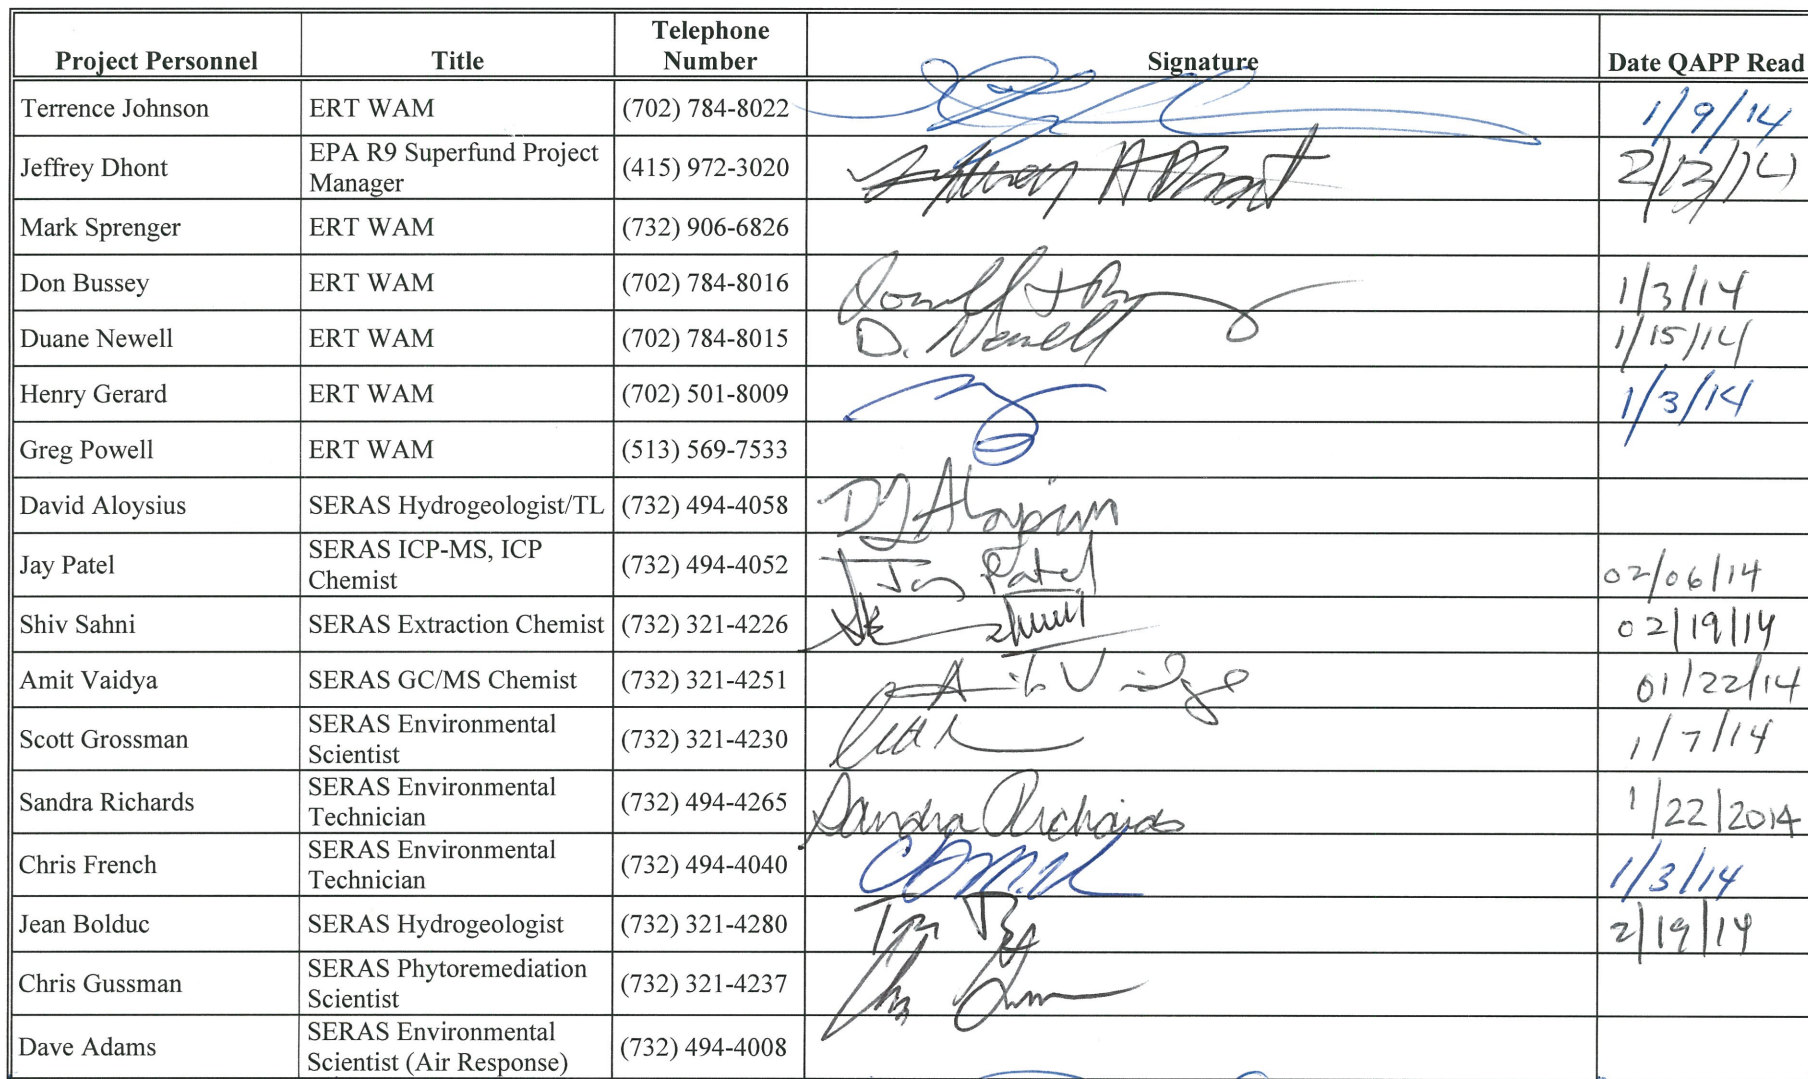 Project Personnel Title Telephone Number Signature Date QAPP Read
Terrence Johnson ERT WAM (702) 784-8022 1/9/14
Jeffrey Dhont EPA R9 Superfund Project Manager (415) 972-3020 Jeffrey A Dhont 2/13/14
Mark Sprenger ERT WAM (732) 906-6826
Don Bussey ERT WAM (702) 784-8016 1/3/14
Duane Newell ERT WAM (702) 784-8015 D. Newell 1/15/14
Henry Gerard ERT WAM (702) 501-8009 1/3/14
Greg Powell ERT WAM (513) 569-7533
David Aloysius SERAS Hydrogeologist/TL (732) 494-4058 DJ Aloysius
Jay Patel SERAS ICP-MS, ICP Chemist (732) 494-4052 Jay Patel 02/06/14
Shiv Sahni SERAS Extraction Chemist (732) 321-4226 02/19/14
Amit Vaidya SERAS GC/MS Chemist (732) 321-4251 01/22/14
Scott Grossman SERAS Environmental Scientist (732) 321-4230 1/7/14
Sandra Richards SERAS Environmental Technician (732) 494-4265 Sandra Richards 1/22/2014
Chris French SERAS Environmental Technician (732) 494-4040 1/3/14
Jean Bolduc SERAS Hydrogeologist (732) 321-4280 2/19/14
Chris Gussman SERAS Phytoremediation Scientist (732) 321-4237
Dave Adams SERAS Environmental Scientist (Air Response) (732) 494-4008